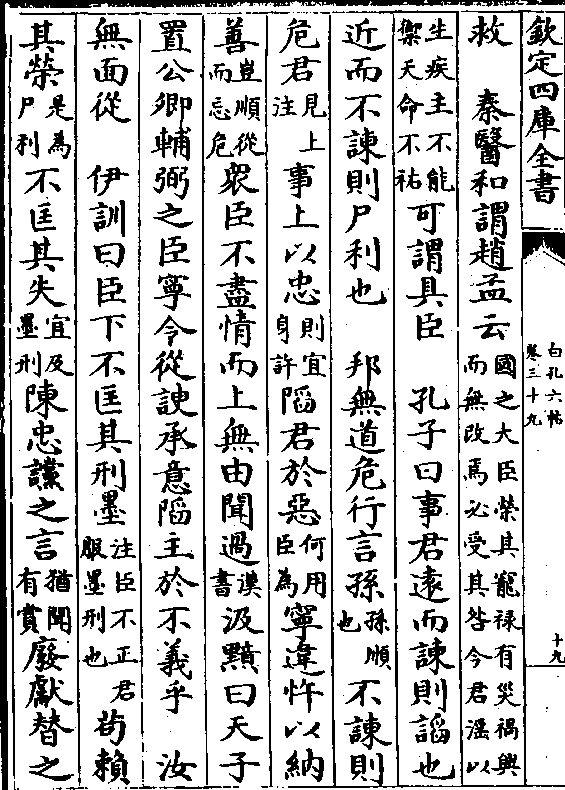 欽定四庫全書
白孔六帖
卷三十九
十九
救　秦醫和謂趙孟云國之大臣榮其寵祿有災禍興而無改焉必受其咎今君淫以
生疾主不能禦天命不祐可謂具臣　孔子曰事君遠而諫則謟也
近而不諫則尸利也　邦無道危行言孫孫順也不諫則
危君見上注事上以忠則宜身許陷君於惡何用臣為寧違忤以納
善豈順從而忘危衆臣不盡情而上無由聞過漢書汲黯曰天子
置公卿輔弼之臣寧令從諛承意陷主於不義乎　汝
無面從　伊訓曰臣下不匡其刑墨注臣不正君服墨刑也茍賴
其榮是為尸利不匡其失宜及墨刑陳忠讜之言猶聞有賞廢獻替之